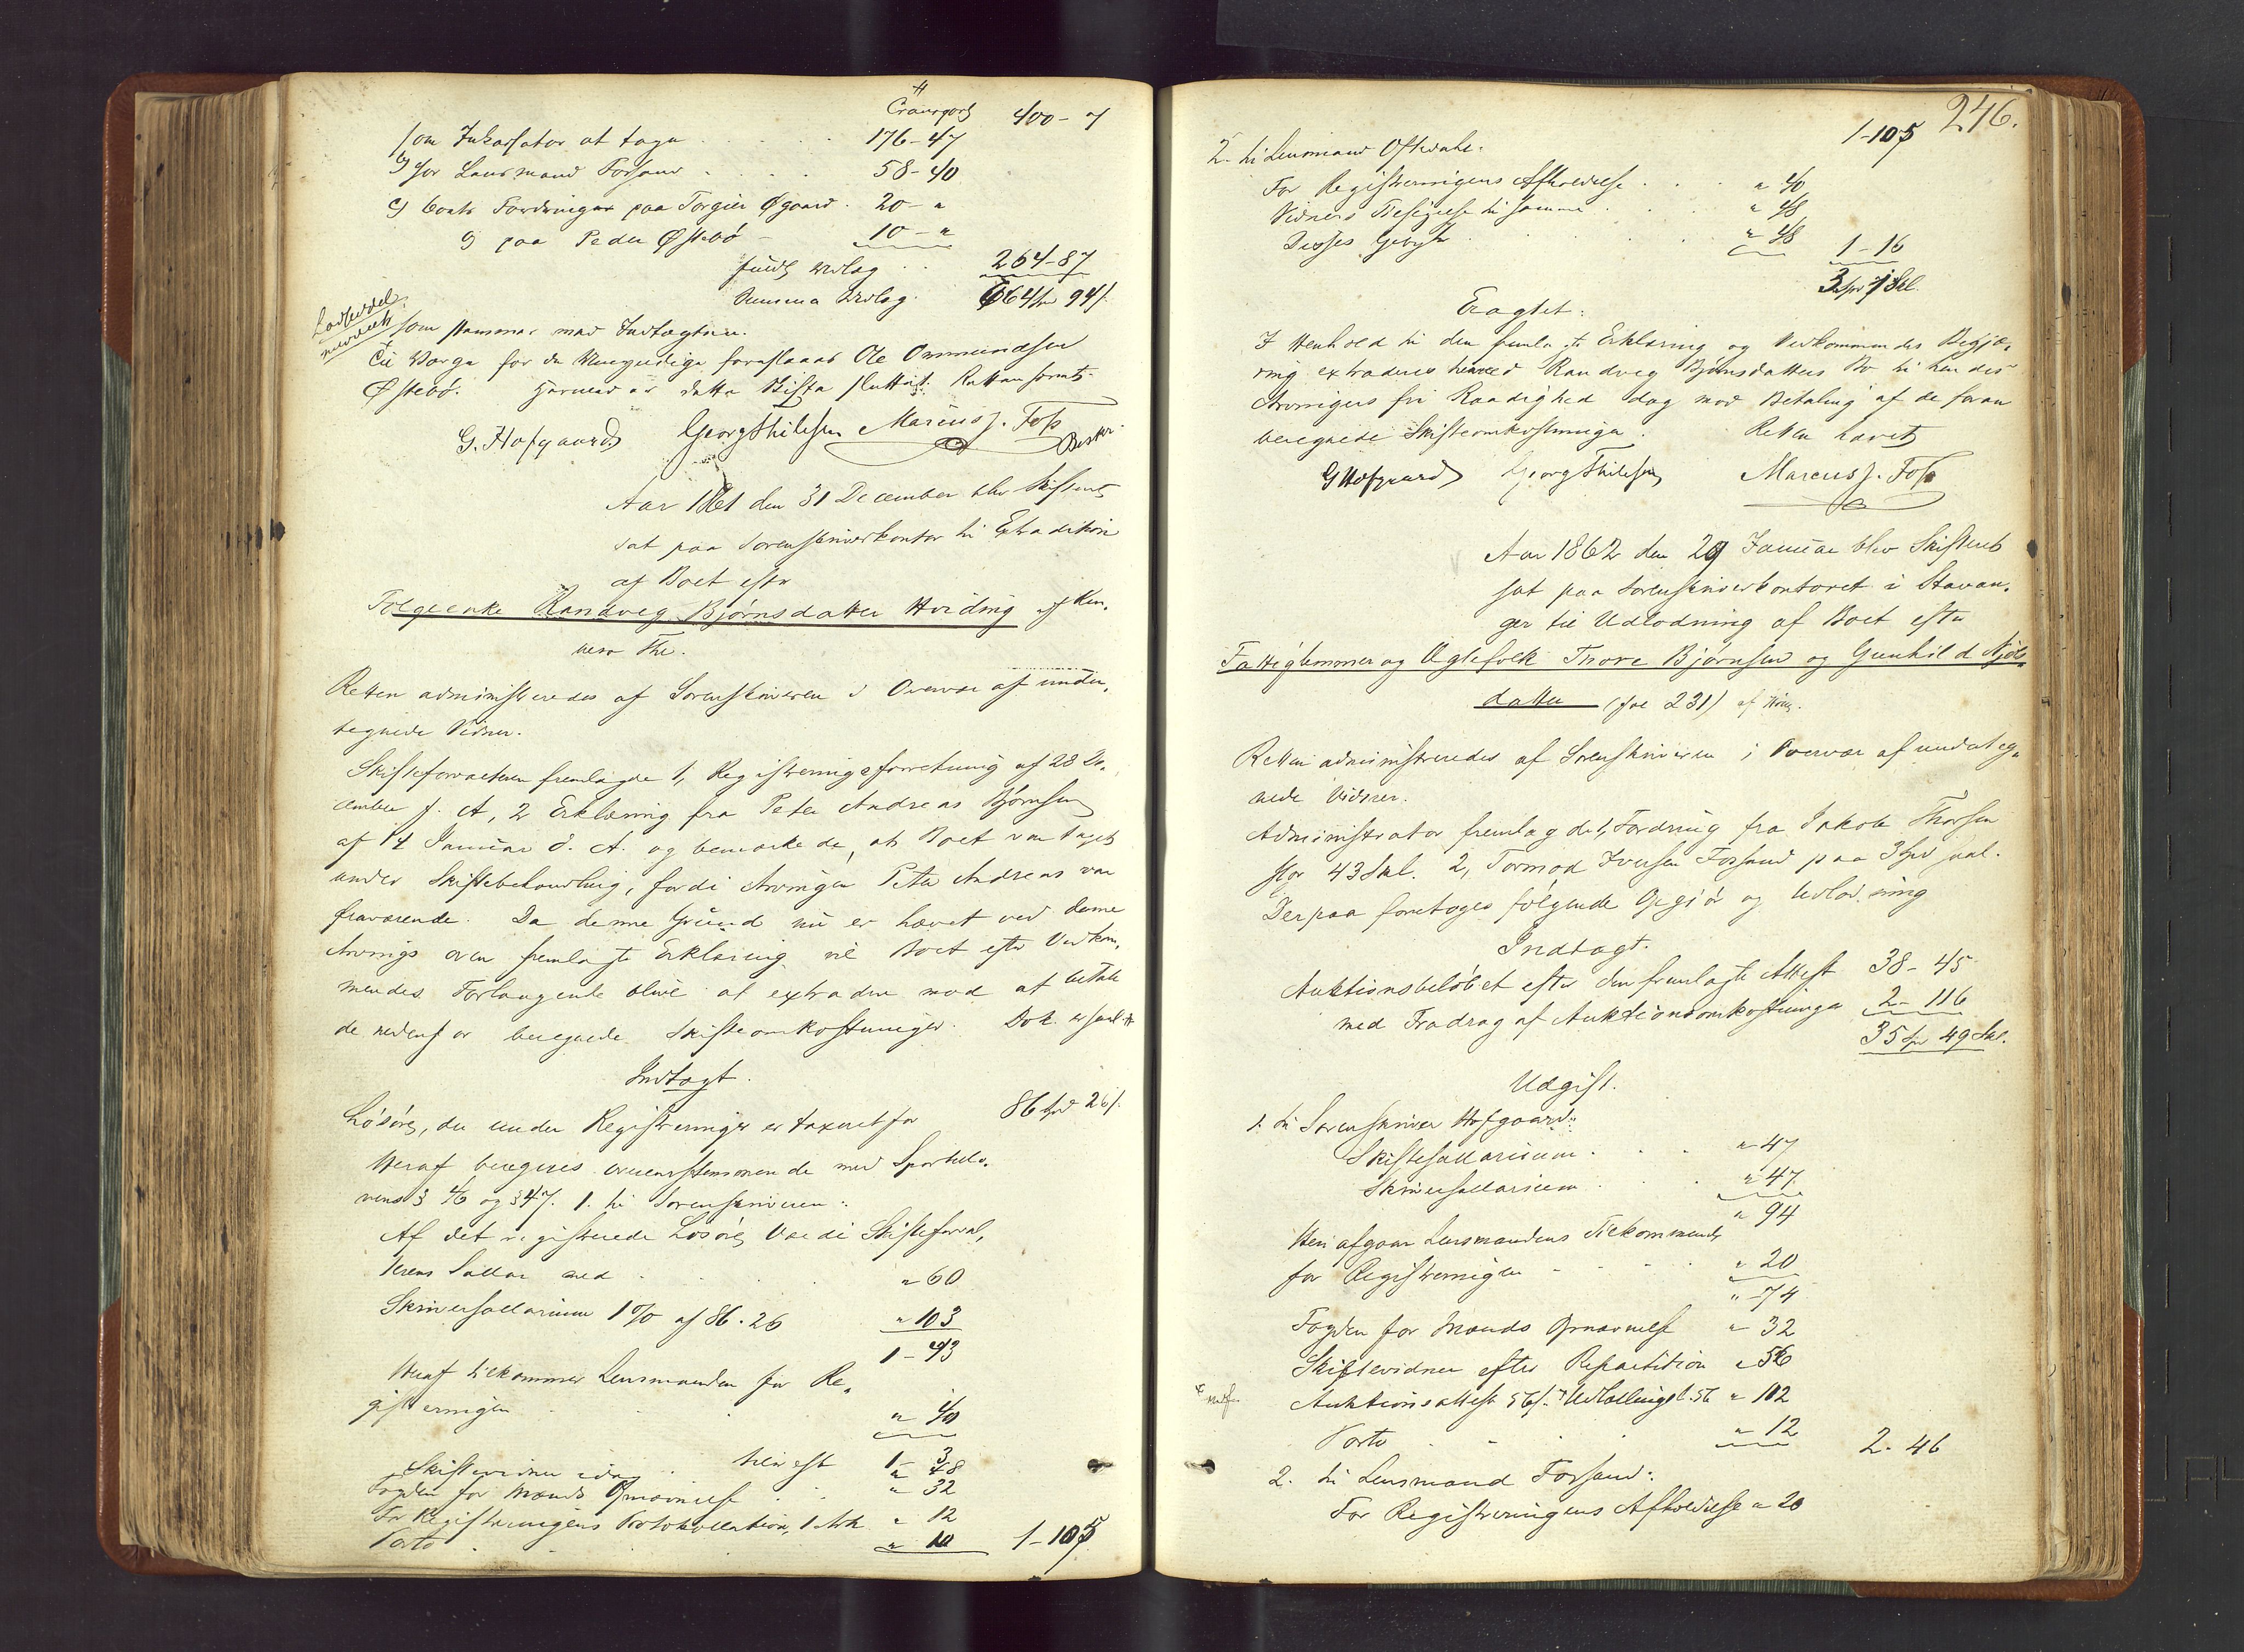 Transport 400 - 7
som Inkassator at tage . . . . 176 - 47
b) hos Lensmand Forsand . . . . 58 - 40
c) Boets Fordringer paa Torgier Øgaard . 20 - "
d) paa Peder Østebö - 10 - "
264 - 87
Summa Udlæg . 664 Spd 94 s.
som stemmer med Indtægten.
Til Værge for de Umyndige foreslaaes Ole Ommundsen
Østebö. Hermed er dette Skifte sluttet. Retten hævet.
G. Hofgaard Georg Thilesen Marcus J. Foss
Aar 1861 den 31 December blev Skifteret
sat paa Sorenskriverkontor til Extradition
af Boet efter
Fölgeenke Randveg Bjørnsdatter Hviding af Ren-
nesø Thl.
Retten administreredes af Sorenskriveren i Overvær af under-
tegnede Vidner.
Skifteforvalteren fremlagde 1, Registreringsforretning af 28 De-
cember f. A, 2 Erklæring fra Peter Andreas Bjørnsen
af 14 Januar d. A. og bemærkede, at Boet var taget
under Skiftebehandling, fordi Arvingen Peter Andreas var
fraværende. Da denne Grund nu er hævet ved denne
Arvings oven fremlagte Erklæring vil Boet efter Vedkom-
mendes Forlangende blive at extradere mod at betale
de nedenfor beregnede Skifteomkostninger. Dok. er saal.
Indtægt.
Lösöre, der under Registreringen er taxeret for 86 Spd 26 s.
Heraf beregnes overensstemmende med Sportello-
vens § 46 og § 47. 1. til Sorenskriveren:
Af det registrerede Lösöres Værdi Skifteforval-
terens Sallar med . . . " 60
Skriversallarium 1 % af 86. 26 " 103
1 - 43
Heraf tilkommer Lensmanden for Re-
gistreringen . . . " 40
Skiftevidner idag . . til rest 1 - 3
" 48
Fogden for Mænds Opnævnelse . . " 32
For Registreringens Protokollation, 1 Ark " 12
Porto . . " 10 1 - 105
246.
1 - 105
2. til Lensmand Oftedahl:
For Registreringens Afholdelse . . . " 40
Vidners Tilsigelse til samme . . " 48
Disses Gebyr . . . . " 48 1 - 16
3 Spd 1 Skl.
Eragtet:
I Henhold til den fremlagte Erklæring og Vedkommendes Begjæ-
ring extraderes herved Randveg Bjørnsdatters Bo til hendes
Arvinger fri Raadighed dog mod Betaling af de foran
beregnede Skifteomkostninger. Retten hævet
G Hofgaard Georg Thilesen Marcus J. Foss
Aar 1862 den 29 Januar blev Skifteret
sat paa Sorenskriverkontoret i Stavan-
ger til Udlodning af Boet efter
Fattiglemmer og Ægtefolk Thore Bjørnsen og Gunhild Njøls-
datter (fol 231)
Retten administreredes af Sorenskriveren i Overvær af underteg-
nede Vidner.
Administrator fremlagde 1, Fordring fra Jakob Thorsen
stor 43 Skl. 2, Tormod Iversen Forsand paa 3 Spd saal.
Derpaa foretoges følgende Opgjör og Udlodning
Indtægt.
Auktionsbelöbet efter den fremlagte Attest 38 - 45
med Fradrag af Auktionsomkostninger 2 - 116
35 Spd 49 Skl.
Udgift.
1. til Sorenskriver Hofgaard:
Skiftesallarium . . . " 47
Skriversallarium . . . " 47
" 94
Heri afgaar Lensmandens Tilkommende
for Registreringen - - - - " 20
" 74
Fogden for Mænds Opnævnelse " 32
Skiftevidner efter Repartition " 56
Auktionsattest 56 s. Udlællingsl. 56 " 112
Porto . . . " 12 2 - 46
2. til Lensmand Forsand:
For Registreringens Afholdelse " 20